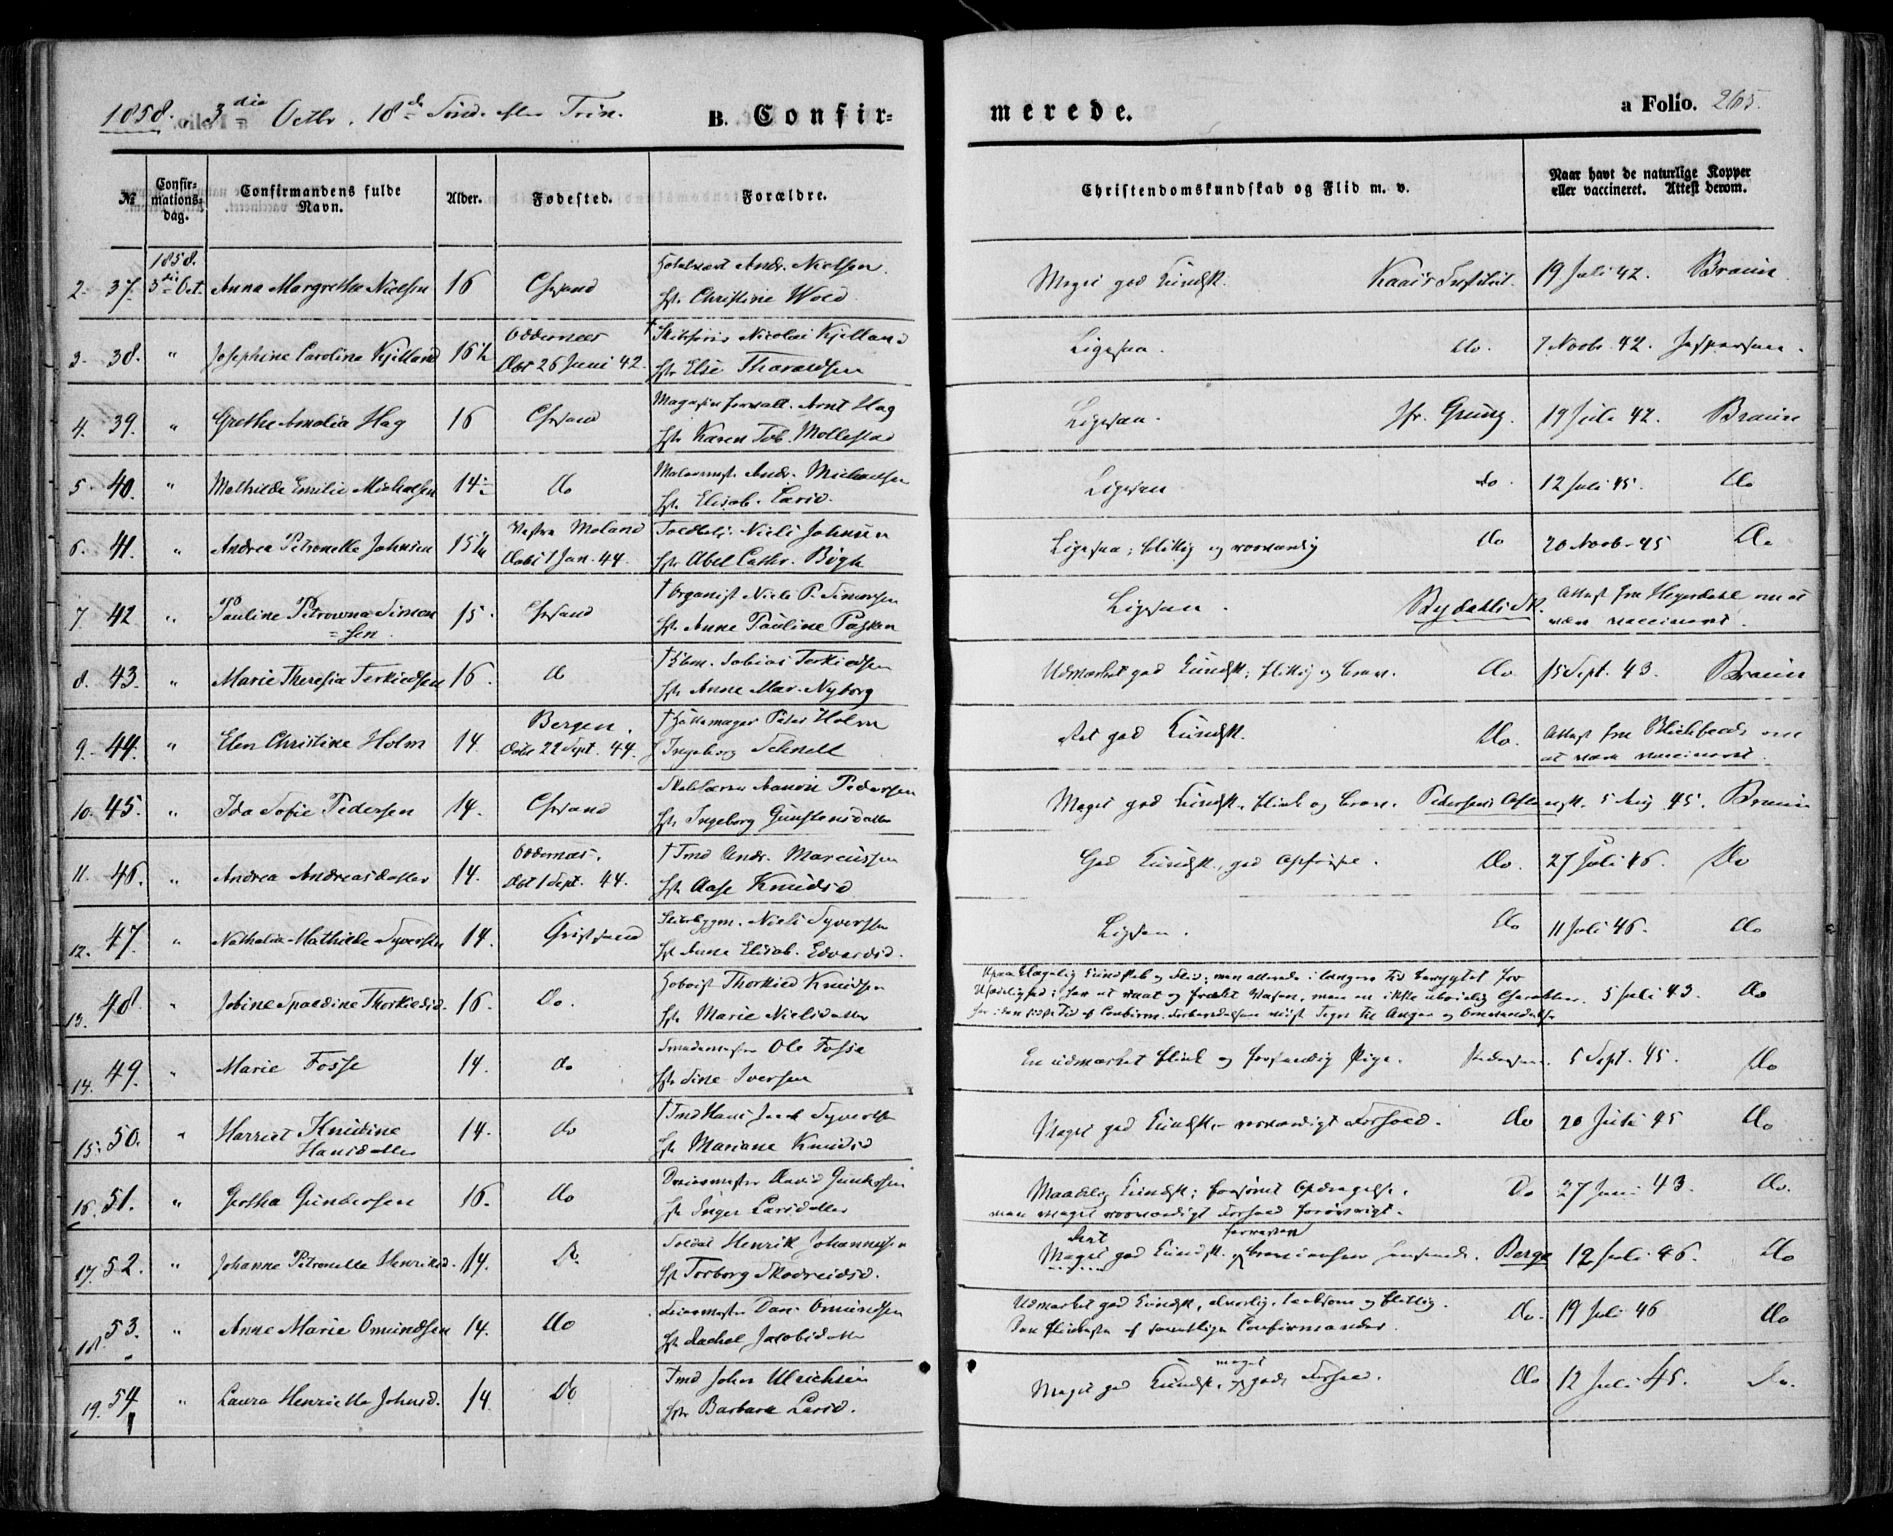 1858. 3die Octbr. 18de Sønd. efter Trin.
B. Confir=
merede.
a Folio. 265.
№
Confir=
mations=
dag.
Confirmandens fulde
Navn.
Alder.
Fødested.
Forældre.
Christendomskundskab og Flid m. v.
Naar havt de naturlige Kopper
eller vaccineret. Attest derom.
1858.
2. 37. 3die Oct. Anna Margrethe Nielsen 16 Chrsand
Andr. Nielsen
Christine Wold
Meget god Kundsk. Institut. 19 Juli 42. Braun
3. 38. " Josephine Caroline Kjelland 16½ Oddernes
Døbt 26 Juni 42.
† Nicolai Kjelland
Else Tharaldsen
Ligesaa. do. 7 Novb. 42. Jespersen.
4. 39. " Grethe Amalia Hag 16 Chrsand
Magasinforvalt. Arnt Hag
Karen Tob. Mollestad
Ligesaa. Fr. Grung. 19 Juli 42. Braun
5 40. " Mathilde Emilie Michelsen 14½ do
Malermest. Andr. Michaelsen
Elisab. Larsd.
Ligesaa do. 12 Juli 45. do
6. 41. " Andrea Petronelle Johnsen 15¼ Vestre Moland
Døbt 1 Jan. 44.
Toldbetj. Niels Johnsen
Abel Cathr. Bøgh
Ligesaa; flittig og do 20 Novb. 45 do
7 42 " Pauline Petrowna Simon
=sen.
15. Chrsand
† Organist Niels P. Simonsen
Anne Pauline
Ligesaa. Attest fra Heyerdahl om at
være vaccineret.
8. 43. " Marie Theresia Terkildsen 16. do
† Tobias Terkildsen
Anne Mar. Nyborg
Udmærket god Kundsk.; flittig og brav. do. 15 Sept. 43. Braun
9. 44. " Elen Christine Holm 14. Bergen.
Døbt 22 Sept. 44.
† Peter Holm
Ingeborg
Ret god Kundsk. do. Attest fra om
at være vaccineret.
10. 45. " Ida Sofie Pedersen 14. Chrsand
Aanon Pedersen
Ingeborg Gunstensdatter
Meget god Kundsk., flink og brav. Pedersens 5 Aug 45. Braun
11. 46. " Andrea Andreasdatter 14. Oddernes.
Døbt 1 Sept. 44.
† Tmd Andr. Marcussen
Aase Knudsd
God Kundsk., god Opførsel. do. 27 Juli 46. do
12. 47. " Nathalia Mathilde Syversen 14. Christsand
Skibsbyggm. Niels Syversen
Anne Elisab. Edvardsd.
Ligesaa. do 11 Juli 46. do
13. 48. " Jobine Thorkildsd. 16. do.
Thorkild Knudsen
Marie Nielsdatter
Upaaklagelig Kundskab og Flid; men allerede i længere Tid berygtet for
Usædelighed; har et raat og frækt Væsen, men en ikke ubøielig Charakter.
har i den sidste Tid af Confirm. Forberedelsen viist Tegn til Anger og Omvendelse
5 Juli 43. do
14. 49. " Marie Fosse 14. do
Smedemester Ole Fosse
Sine Iversen
En udmærket flink og forstandig Pige. Pedersen. 5 Sept. 45. do
15. 50. " Harriet Knudine
Hansdatter
14. do
† Tmd Hans Jacob Syvertsen
Mariane Knudsd
Meget god Kundsk. – Forhold. do 20 Juli 45 do
16. 51. " Gertha Gundersen 16. do
David Gundersen
Inger Larsdatter
Maadelig Kundsk.; forsømt Opdragelse.
men meget Forhold forøvrigt.
do 27 Juni 43. do.
17. 52. " Johanne Petronelle Henriksd. 14. do
Soldat Henrik Johannessen
Torborg
Meget god Kundsk. Berge 12 Juli 46. do
18. 53. " Anne Marie Omundsen 14. do
Dan. Omundsen
Rachel Jacobsdatter
Udmærket god Kundsk., alvorlig, lærksom og flittig.
Den flinkeste af samtlige Confirmander.
do. 19 Juli 46 do
19. 54 " Laura Henriette Johnsd. 14. do
Tmd John Ulrichsen
Barbara Larsd.
Meget god Kundsk., og meget godt Forhold. do 12 Juli 45. do.